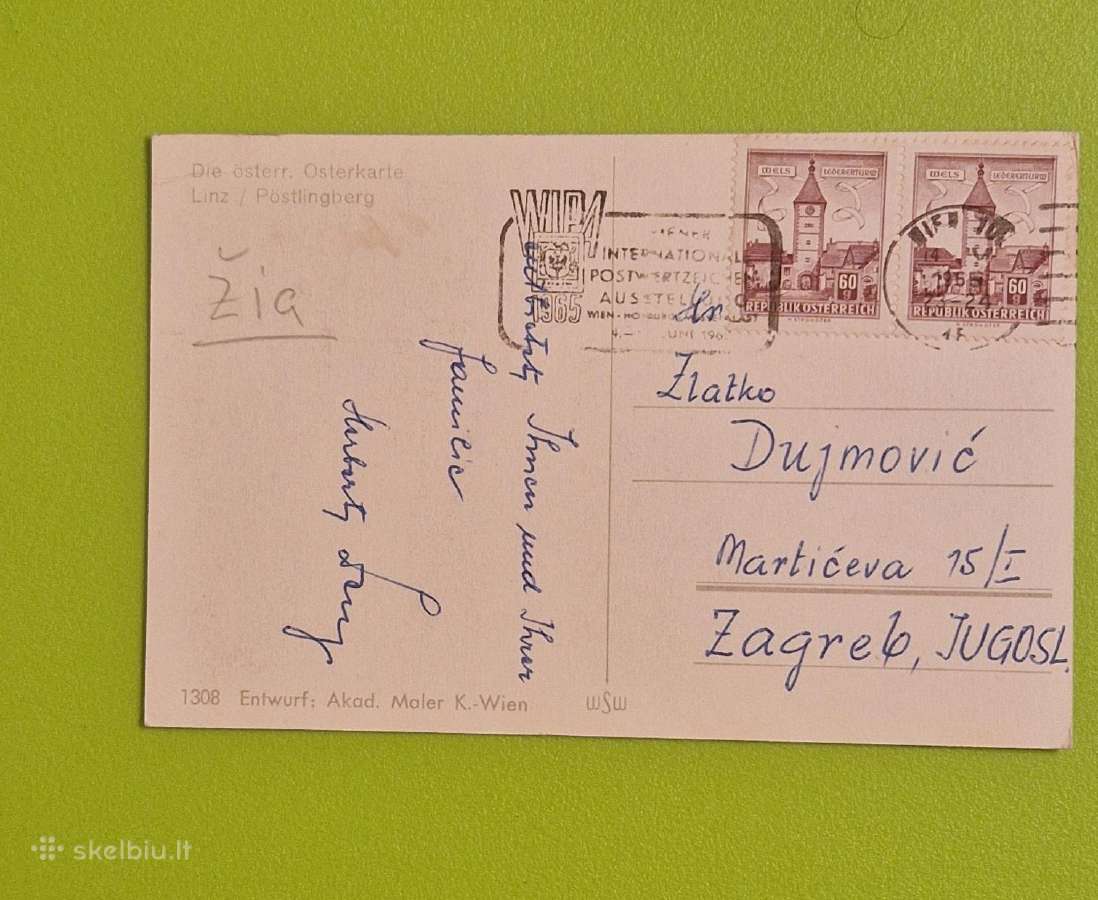 Die österr. Osterkarte
Linz / Pöstlingberg
Žia
WIPA
1965
WIENER
INTERNATIONALE
POSTWERTZEICHEN
AUSSTELLUNG
WIEN - HOFBURG
JUNI 196
WELS LEDERERTURM
60 g
REPUBLIK ÖSTERREICH
WELS LEDERERTURM
60 g
REPUBLIK ÖSTERREICH
WIEN 101
14
1965
22-24
Ihnen und Ihrer
Familie
Hr
Zlatko
Dujmović
Martićeva 15/I
Zagreb, JUGOSL.
1308 Entwurf: Akad. Maler K.-Wien
WSW
skelbiu.lt